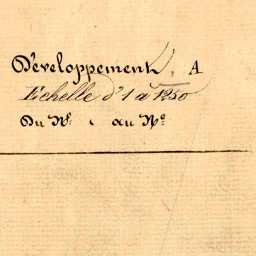 Développement, A
Echelle d'1 à 1250
Du Nº. au Nº.